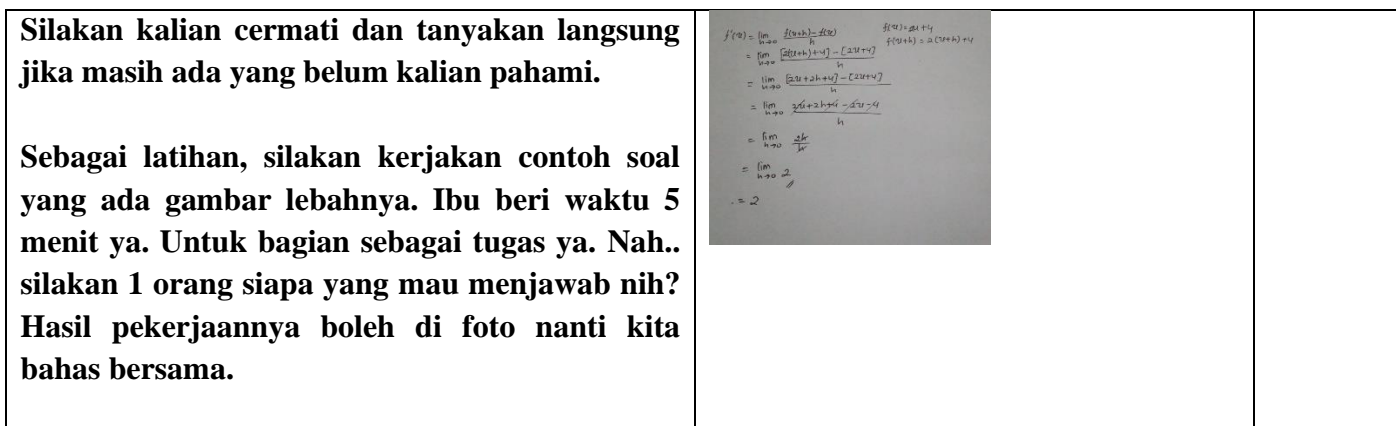 Silakan kalian cermati dan tanyakan langsung
jika masih ada yang belum kalian pahami.
Sebagai latihan, silakan kerjakan contoh soal
yang ada gambar lebahnya. Ibu beri waktu 5
menit ya. Untuk bagian sebagai tugas ya. Nah..
silakan 1 orang siapa yang mau menjawab nih?
Hasil pekerjaannya boleh di foto nanti kita
bahas bersama.
f'(x) = lim h→0 f(x+h) - f(x) / h
f(x) = 2x+4
f(x+h) = 2(x+h)+4
= lim h→0 [2(x+h)+4] - [2x+4] / h
= lim h→0 [2x+2h+4] - [2x+4] / h
= lim h→0 2x+2h+4 - 2x-4 / h
= lim h→0 2h / h
= lim h→0 2
= 2